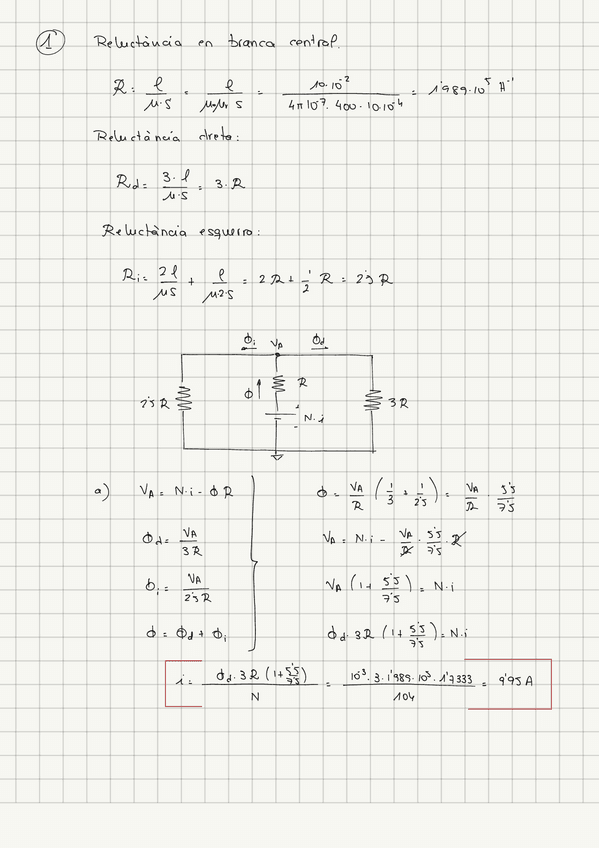 1
Reluctància en branca central.
R = l / μ·S = l / μ₀μr S = 10·10⁻² / 4π10⁻⁷·400·10·10⁻⁴ = 1'989·10⁵ H⁻¹
Reluctància dreta:
Rd = 3·l / μ·S = 3·R
Reluctància esquerro:
Ri = 2l / μS + l / μ2·S = 2R + 1/2 R = 2'5 R
ϕi VA ϕd
R
ϕ
2'5R
3R
N·i
a) VA = N·i - ϕR
ϕ = VA/R (1/3 + 1/2'5) = VA/R · 5'5/7'5
ϕd = VA / 3R
VA = N·i - VA/R · 5'5/7'5 · R
ϕi = VA / 2'5R
VA (1 + 5'5/7'5) = N·i
ϕ = ϕd + ϕi
ϕd·3R (1 + 5'5/7'5) = N·i
i = ϕd·3R (1 + 5'5/7'5) / N = 10⁻³·3·1'989·10⁵·1'7333 / 104 = 9'95 A